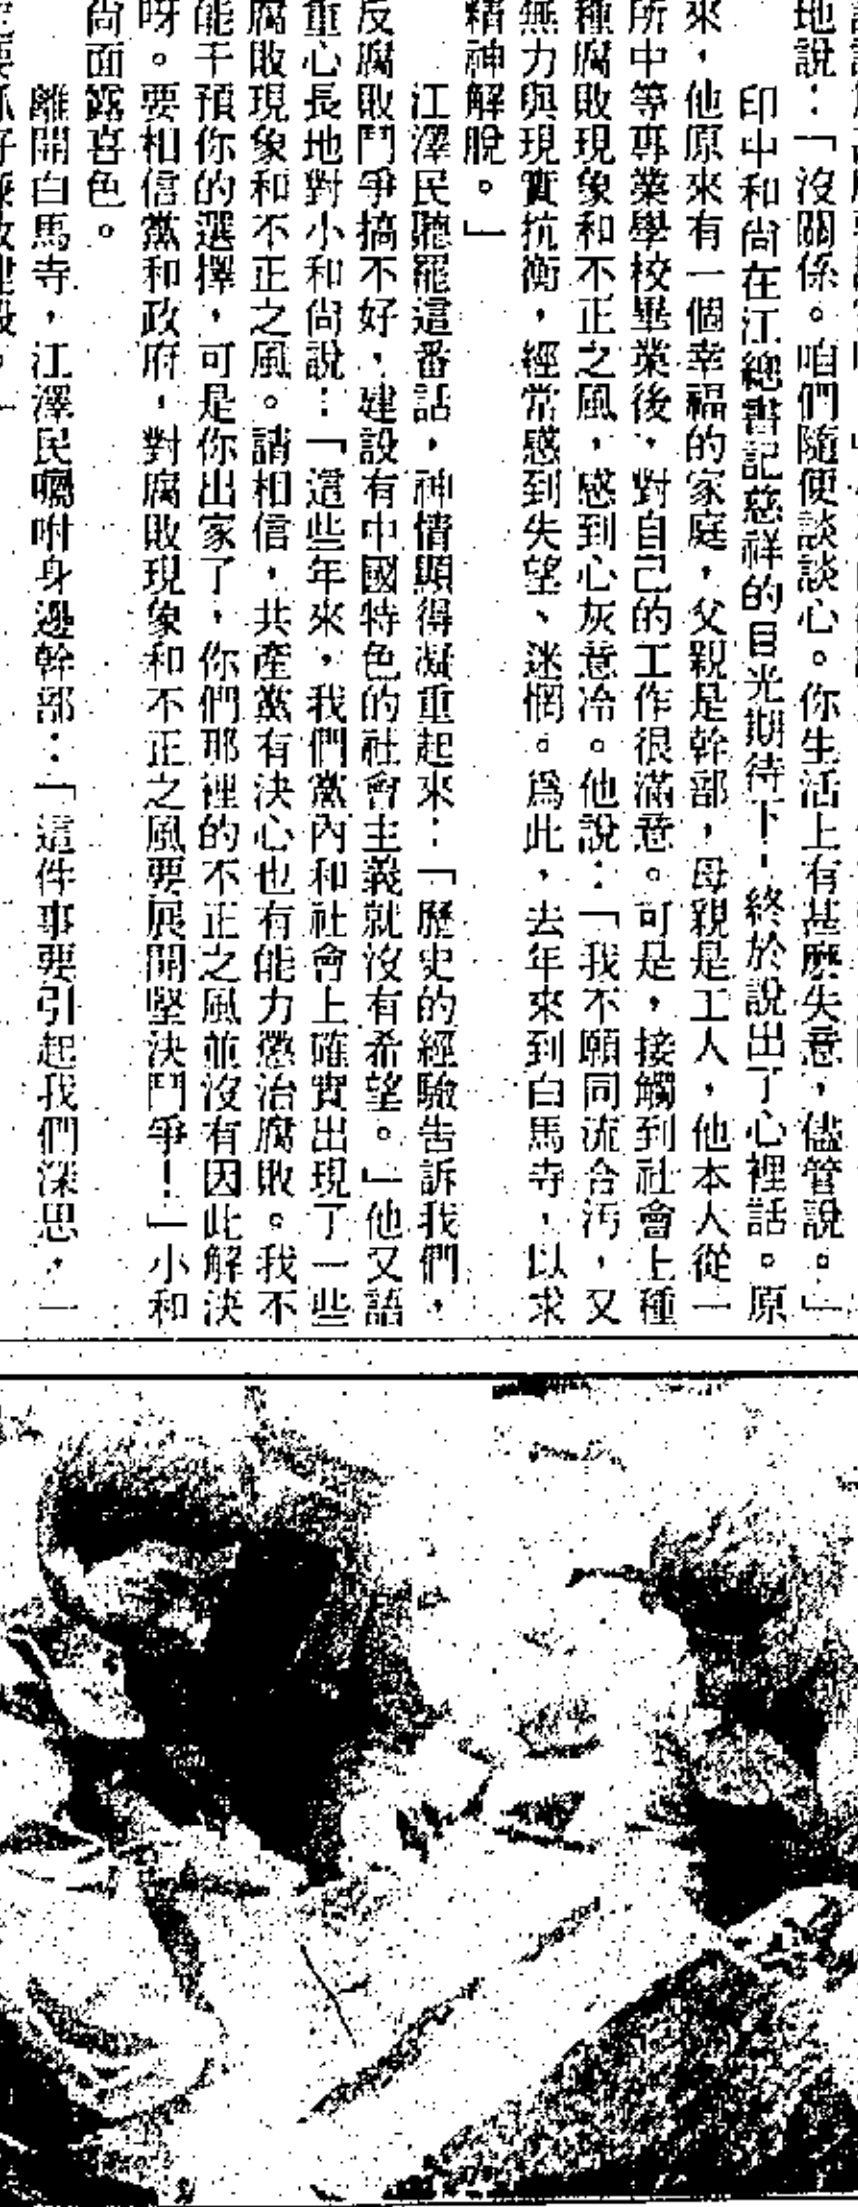 地說：「沒關係。咱們隨便談談心。你生活上有甚麼失意，儘管說。」
印中和尚在江總書記慈祥的目光期待下，終於說出了心裡話。原
來，他原來有一個幸福的家庭，父親是幹部，母親是工人，他本人從一
所中等專業學校畢業後，對自己的工作很滿意。可是，接觸到社會上種
種腐敗現象和不正之風，感到心灰意冷。他說：「我不願同流合污，又
無力與現實抗衡，經常感到失望、迷惘。爲此，去年來到白馬寺，以求
精神解脫。」
江澤民聽罷這番話，神情顯得凝重起來：「歷史的經驗告訴我們，
反腐敗鬥爭搞不好，建設有中國特色的社會主義就沒有希望。」他又語
重心長地對小和尚說：「這些年來，我們黨內和社會上確實出現了一些
腐敗現象和不正之風。請相信，共產黨有決心也有能力懲治腐敗。我不
能干預你的選擇，可是你出家了，你們那裡的不正之風並沒有因此解決
呀。要相信黨和政府，對腐敗現象和不正之風要展開堅決鬥爭！」小和
尚面露喜色。
離開白馬寺，江澤民囑咐身邊幹部：「這件事要引起我們深思，一